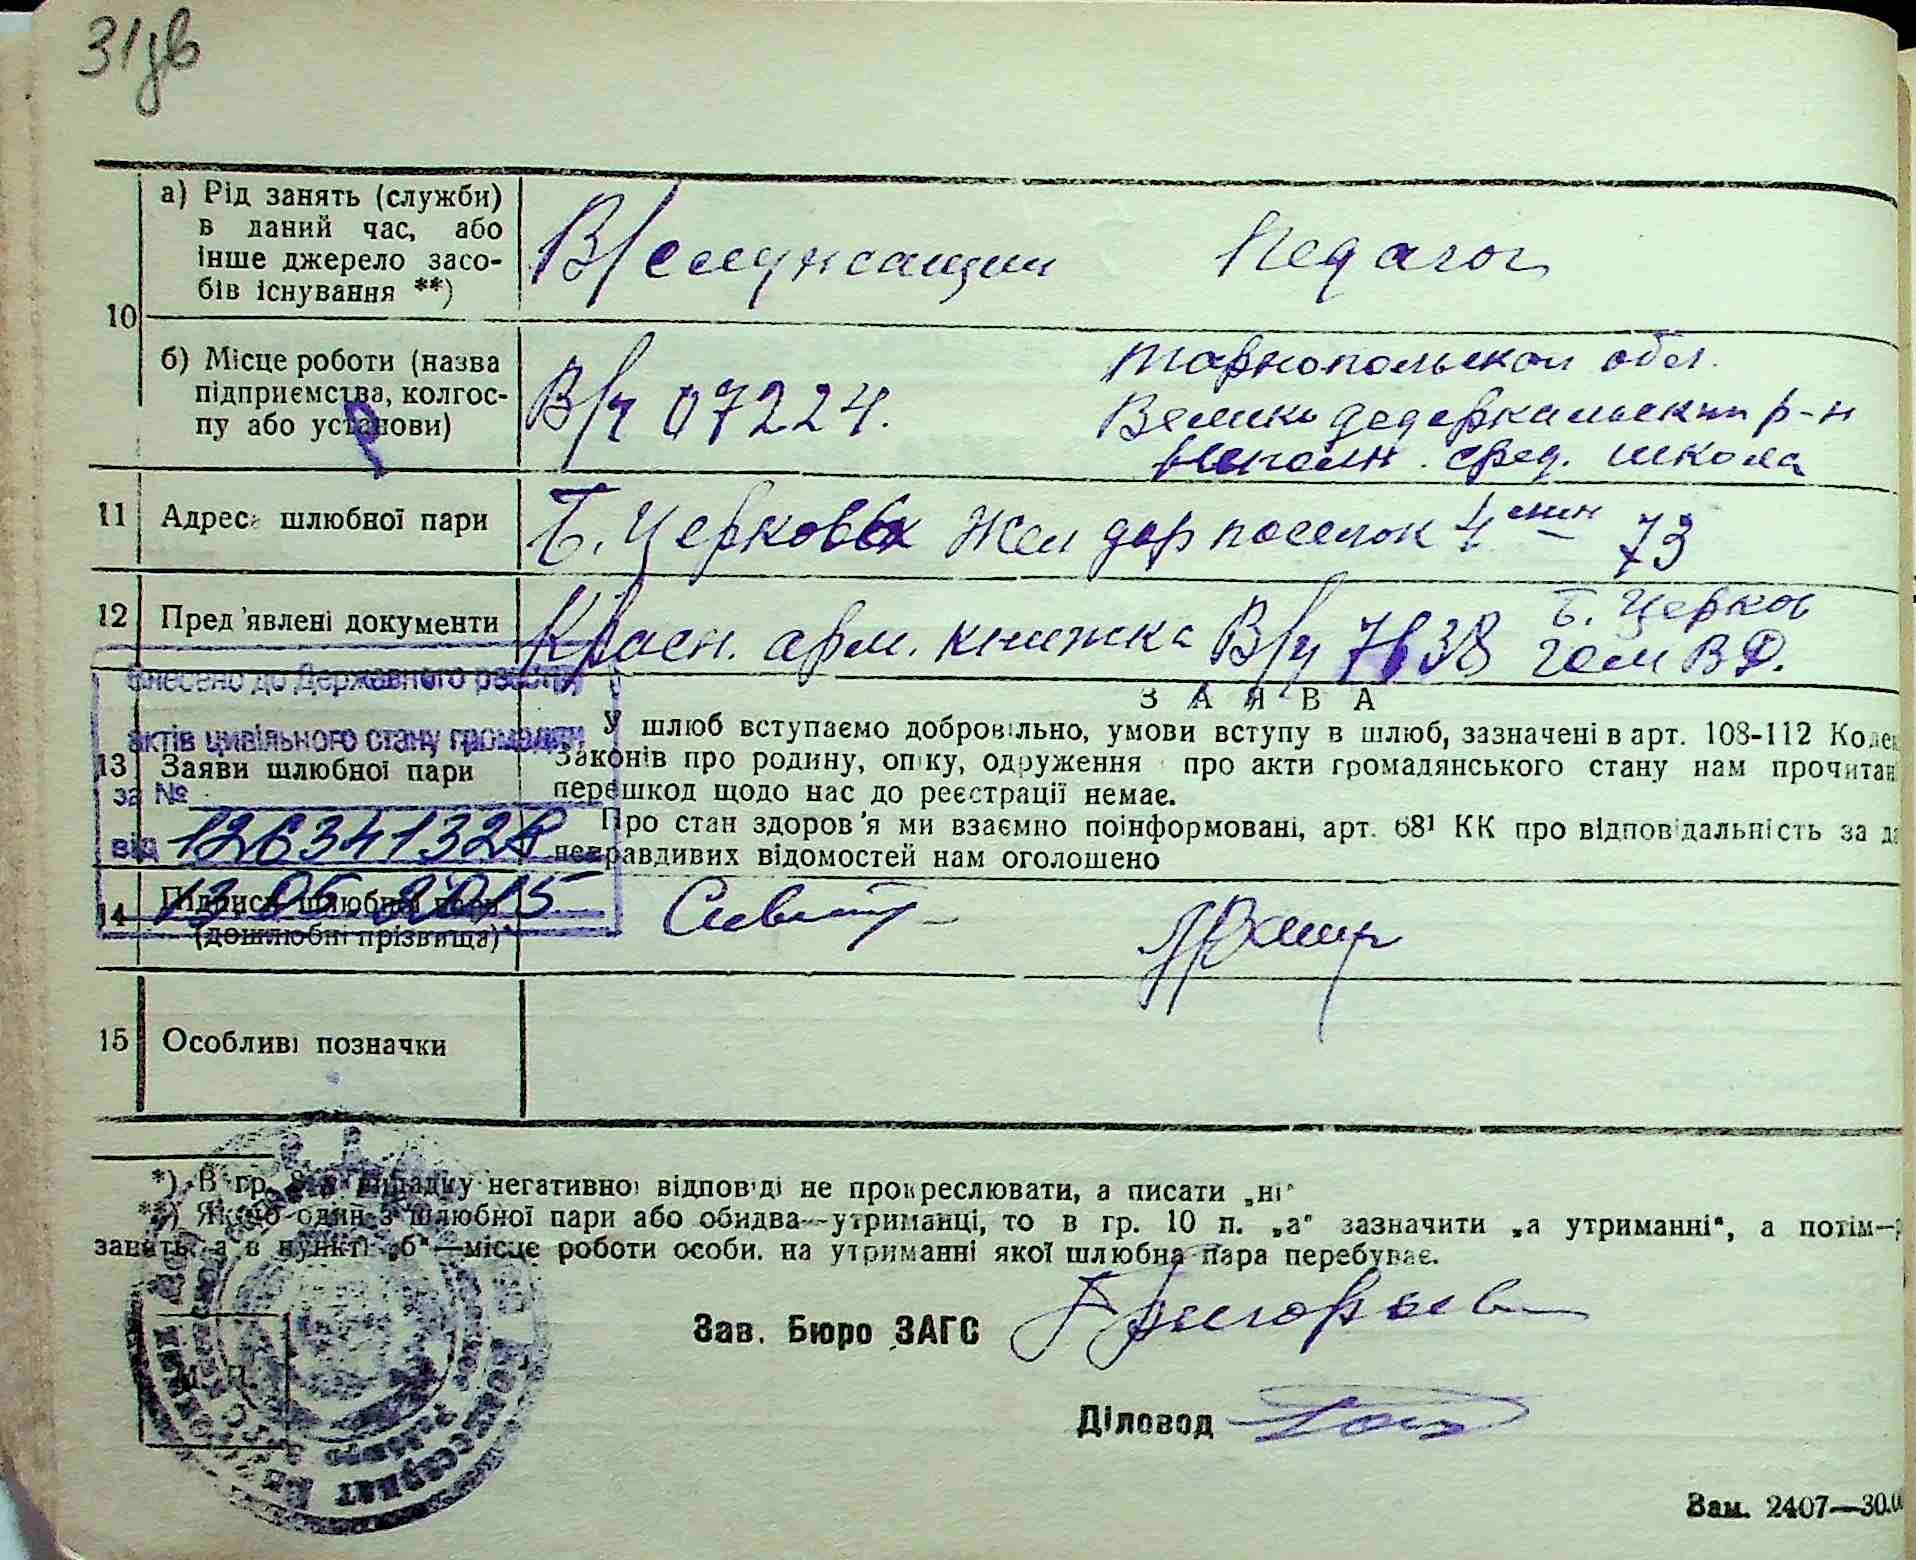 31зв
10
а) Рід занять (служби)
в даний час, або
інше джерело засо-
бів існування **)
В/служащий
Педагог
б) Місце роботи (назва
підприємства, колгос-
пу або установи)
В/ч 07224.
Тарнопольской обл.
Велико дедеркальский р-н
сред. школа
11 Адреса шлюбної пари
Б. Церковь Жел дор поселок 73
12 Пред'явлені документи
Красн. арм. книжка В/ч 7638
Б. Церков
Внесено до Державного реєстру
актів цивільного стану громадян
за №
від 126341328
13.05.2015
13 Заяви шлюбної пари
ЗАЯВА
У шлюб вступаємо добровільно, умови вступу в шлюб, зазначені в арт. 108-112 Коде
Законів про родину, опіку, одруження про акти громадянського стану нам прочитан
перешкод щодо нас до реєстрації немає.
Про стан здоров'я ми взаємно поінформовані, арт. 68¹ КК про відповідальність за да
неправдивих відомостей нам оголошено
14 Підписи шлюбної пари
(дошлюбні прізвища)
15 Особливі позначки
*) В гр. випадку негативної відповіді не прокреслювати, а писати „ні"
**) Якщо один з шлюбної пари або обидва—утриманці, то в гр. 10 п. „а" зазначити „а утриманні", а потім—
а в пункті „б"—місце роботи особи. на утриманні якої шлюбна пара перебуває.
Зав. Бюро ЗАГС Григорьев
Діловод
М. П.
Зам. 2407—30.